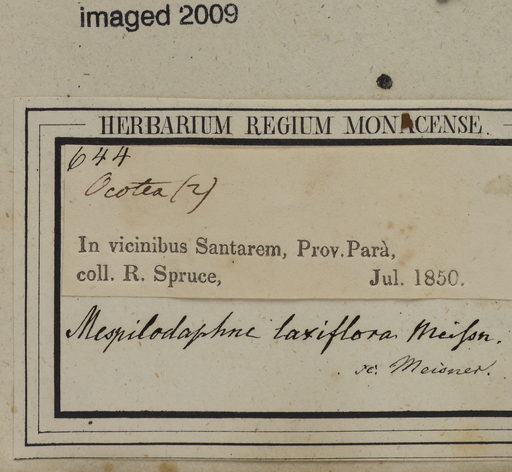 imaged 2009
HERBARIUM REGIUM MONACENSE.
644
Ocotea (2)
In vicinibus Santarem, Prov. Parà,
coll. R. Spruce, Jul. 1850.
Mespilodaphne laxiflora Meissn.
sc. Meisner.